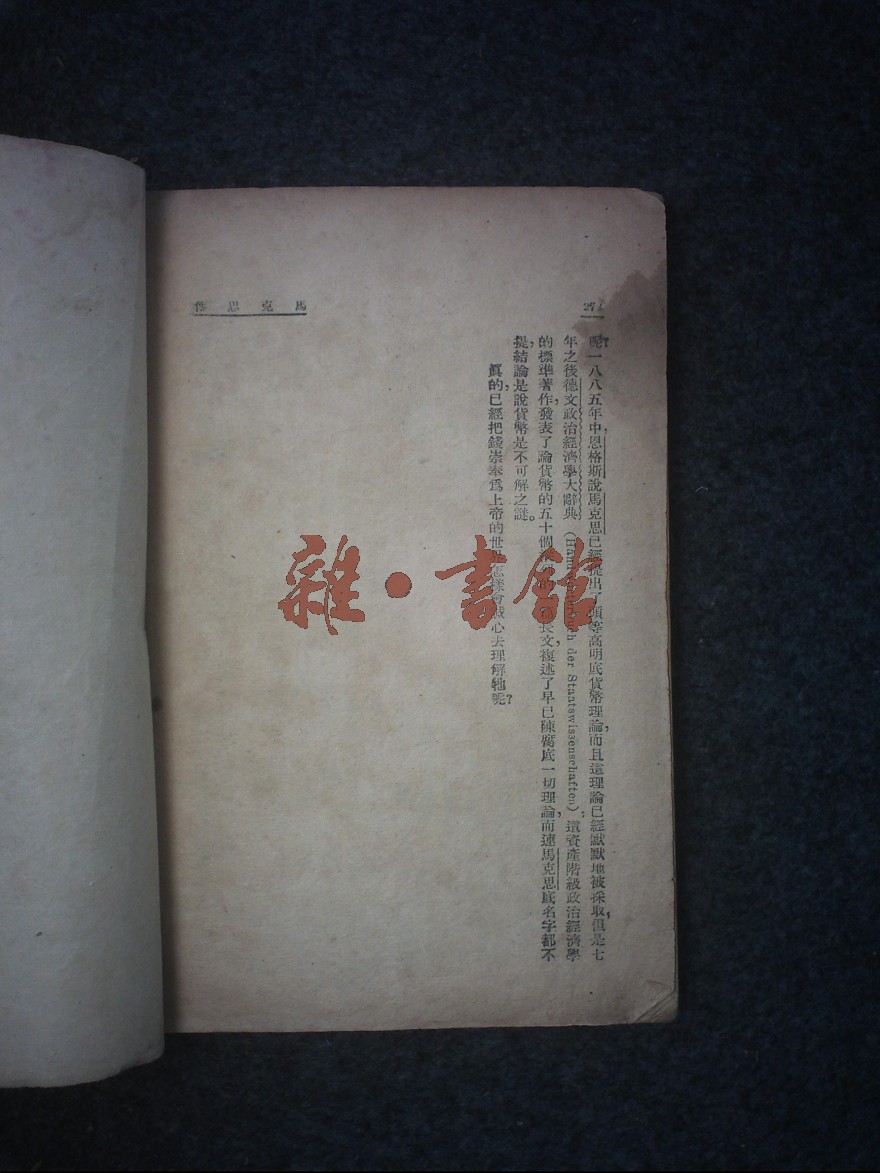 馬克思傳
呢?一八八五年中,恩格斯說馬克思已經提出了頭等高明底貨幣理論,而且這理論已經默默地被採取,但是七
年之後德文政治經濟學大辭典 der Staatswissenschaften),這資產階級政治經濟學
的標準著作,發表了論貨幣的五十個 長文,複述了早已陳腐底一切理論,而連馬克思底名字都不
提,結論是說貨幣是不可解之謎。
眞的,已經把錢崇奉爲上帝的世界怎樣會誠心去理解牠呢?
雜·書館